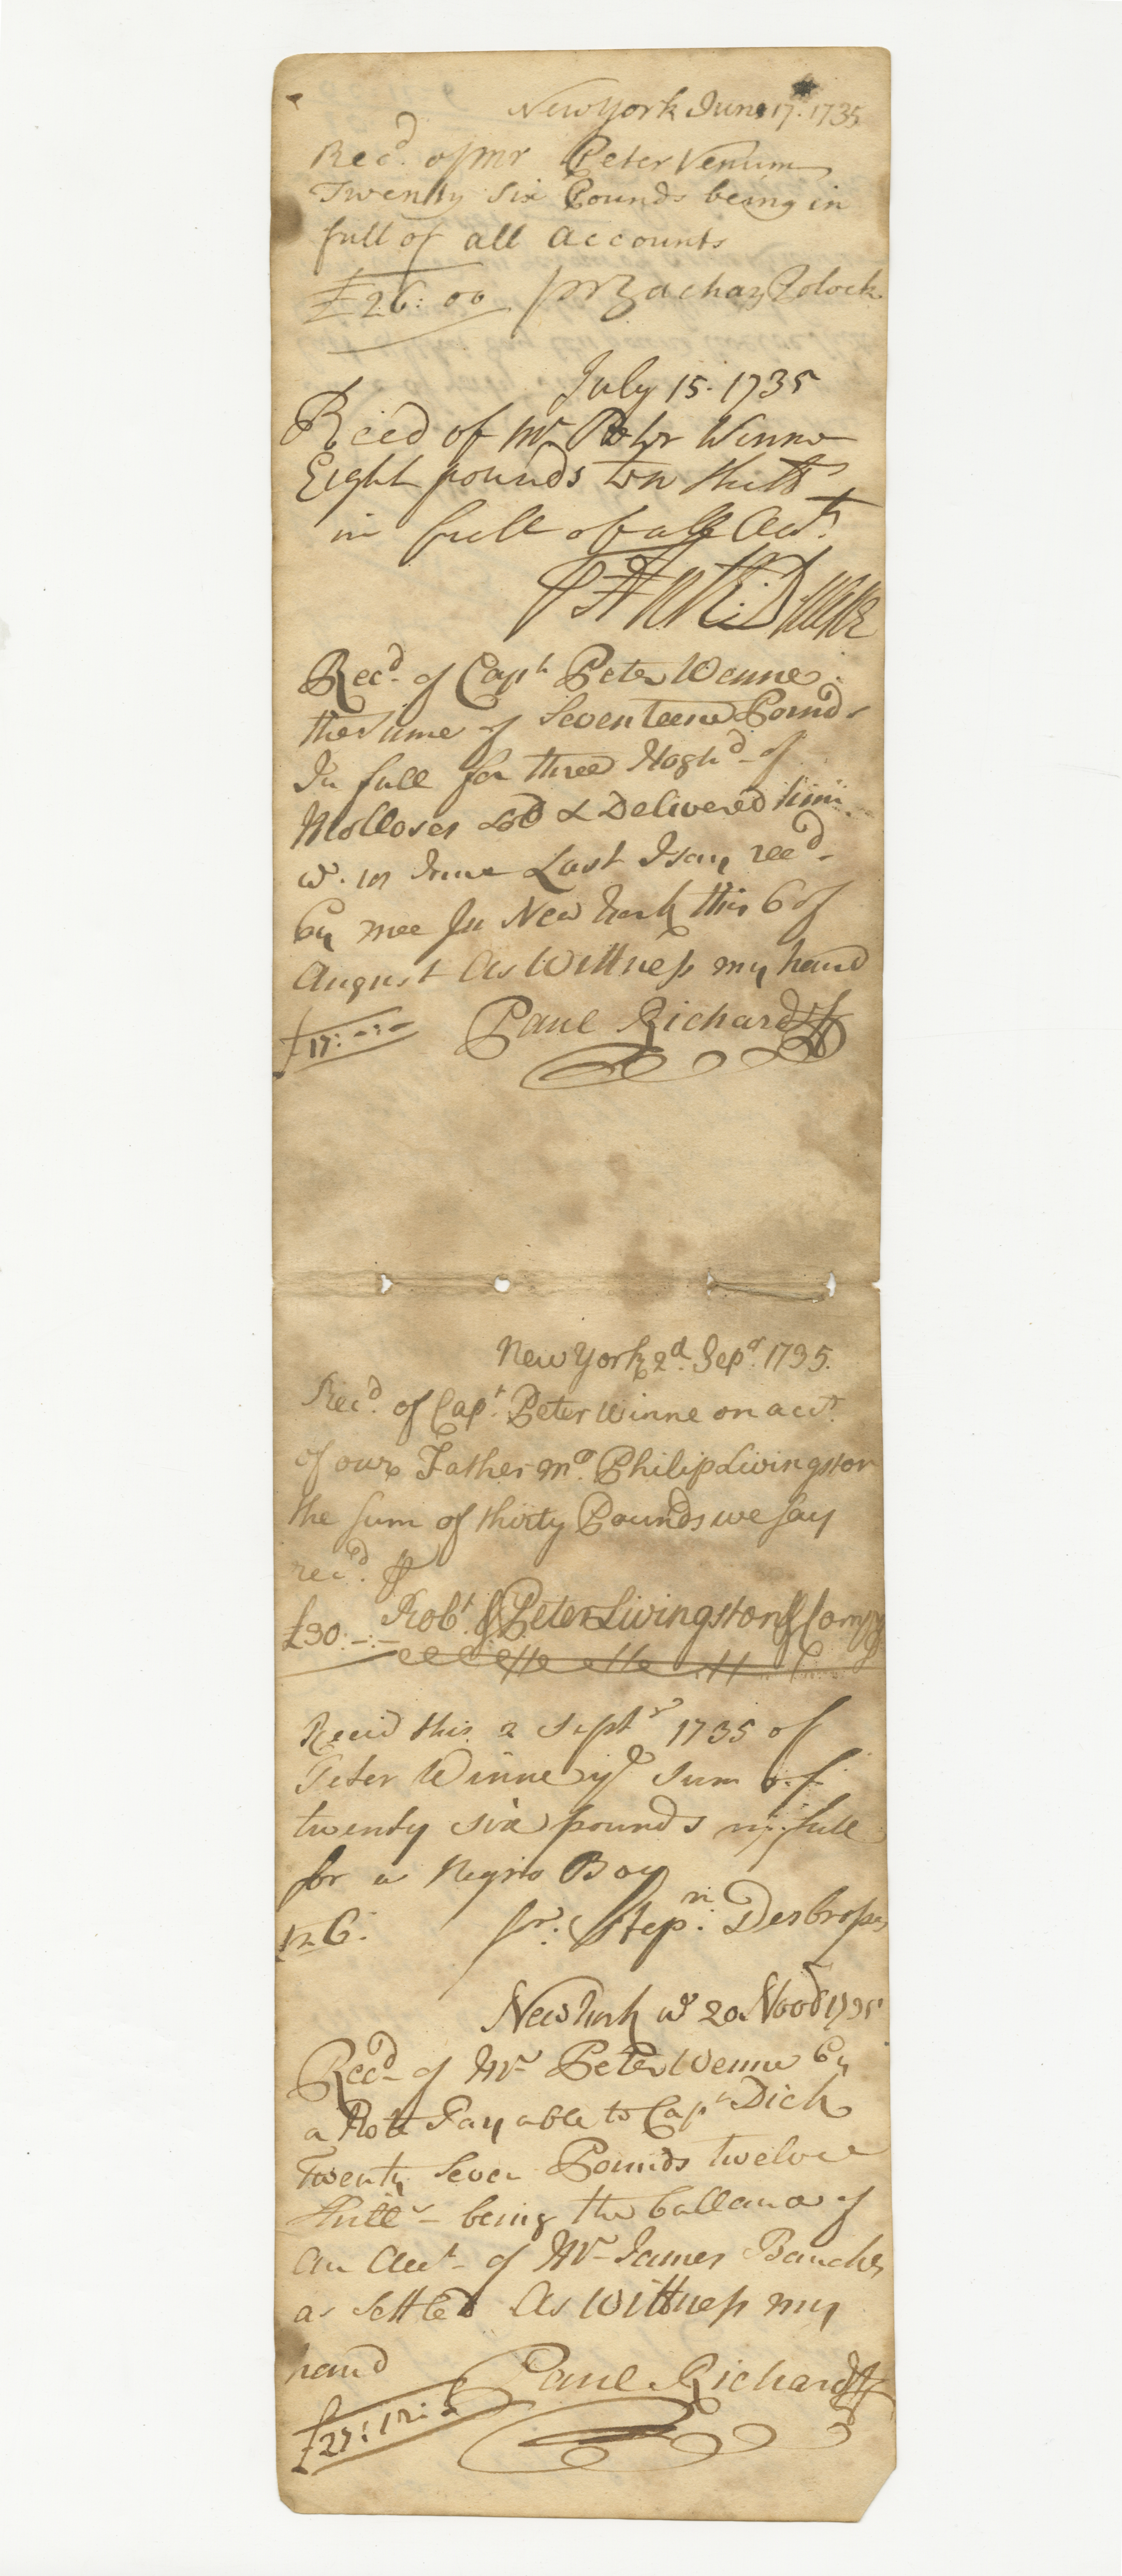 New York June 17. 1735
Rec^d. of mr Peter Venum
Twenty Six Pounds being in
full of all accounts
£26: 00 pr Zachay
July 15. 1735
Rceed of Mr Peter Winne
Eight pounds ten shill^s
in full of all Acct^s
Rec^d of Cap^t Peter Wenne
the Sume of Seventeene Pounds
In full for three Hogh^d of
Molloses sod & Delivered him
in June Last I say reed
by mee In New York this 6 of
August As Wittness my hand
£17:-:- Paul Richard
New York 2^d. Sep^r. 1735.
Rec^d. of Cap^t. Peter Winne on acc^t.
of our Father M^r. Philip Livingston
the Sum of thirty Pounds we say
rec^d.
£30.-.- Rob^t. & Peter Livingston & Comp
Receid this 2 Sept^r 1735 of
Peter Winne y^e Sum of
twenty six pounds in full
for a Negro Boy
£26: pr. Step^n: Desbrosses
New York 20 Nov 1735
Recd of Mr Peter Wenne by
a Note Payable to Cap^t Dick
Twenty Seven Pounds twelve
Shill^s - being the ballance of
an Acct of Mr James Banches
as Settled As Wittness my
hand Paul Richard
£27:12: